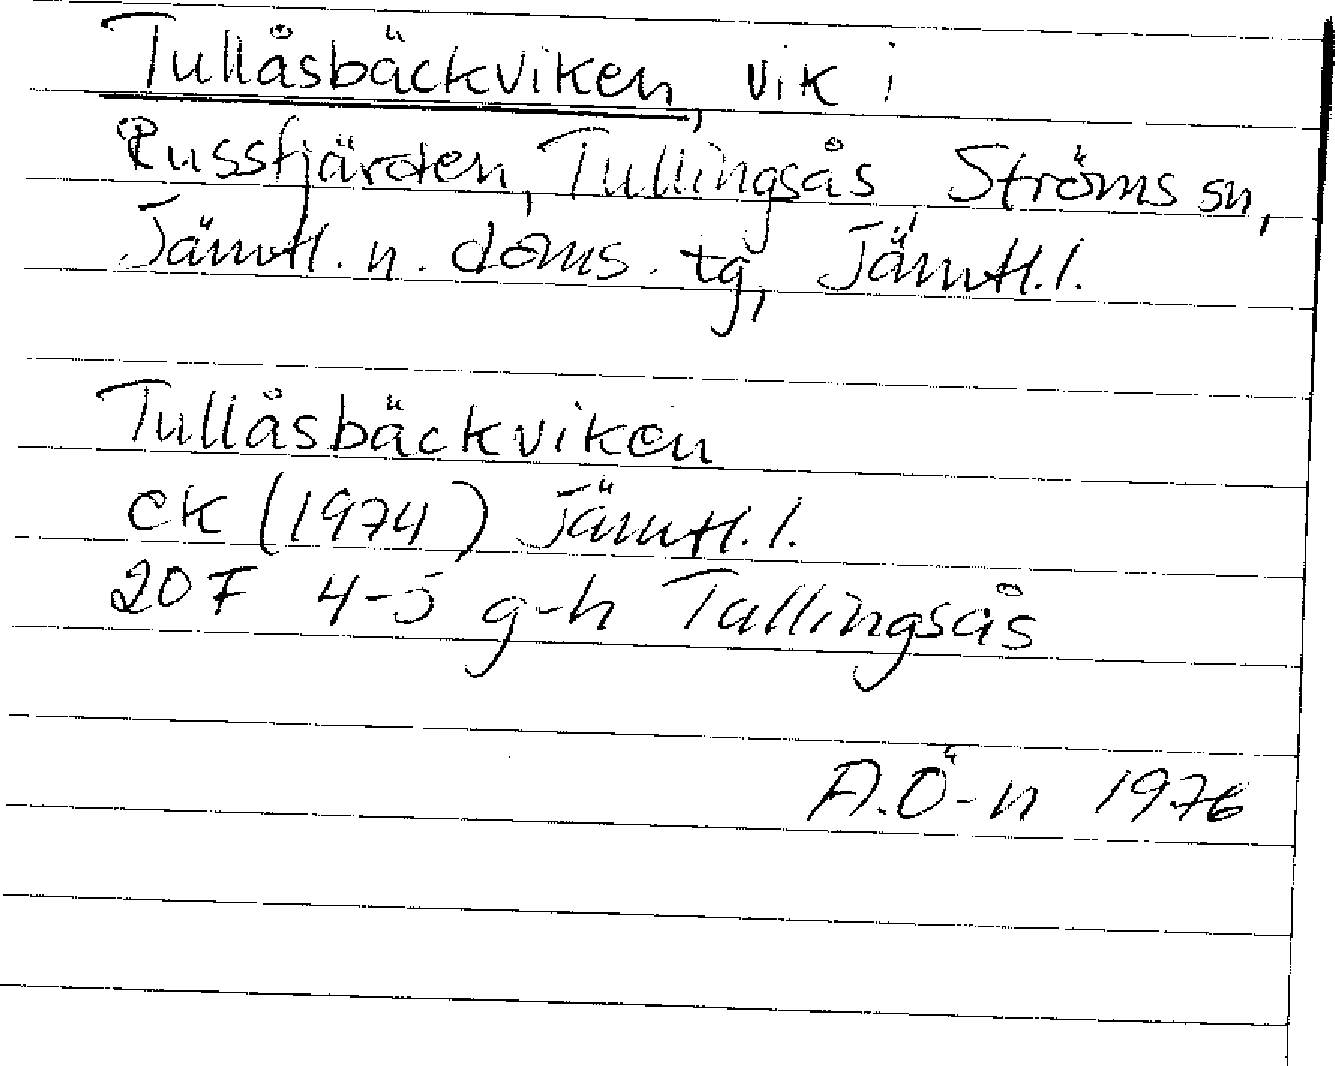 Tullåsbäckviken, vik i
Russfjärden, Tullingsås, Ströms sn,
Jämtl. n. doms. tg, Jämtl. l.
Tullåsbäckviken
ek (1974) Jämtl. l.
20F 4-5 g-h Tullingsås
A.Ö-n 1976